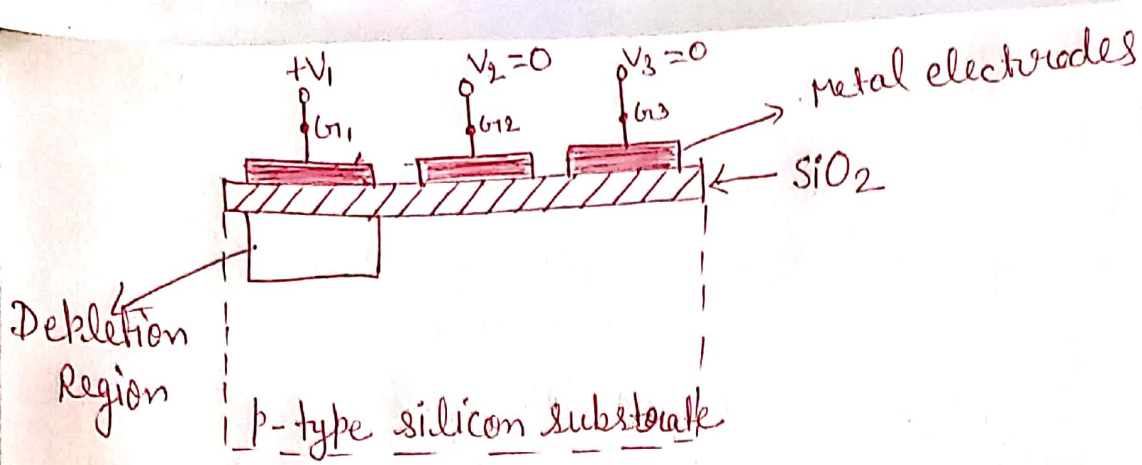 +V₁
V₂=0
V₃=0
G1
G2
G3
Metal electrodes
SiO₂
Depletion
Region
p-type silicon substrate